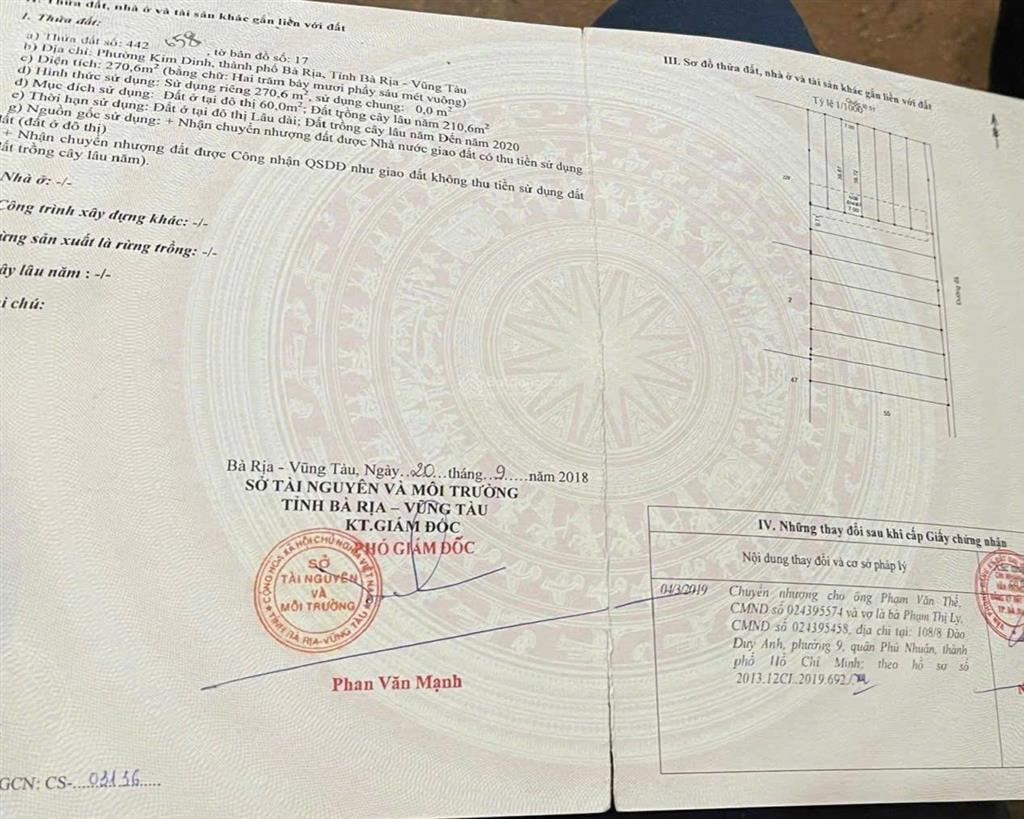 II. Thửa đất, nhà ở và tài sản khác gắn liền với đất
1. Thửa đất:
a) Thửa đất số: 442 658, tờ bản đồ số: 17
b) Địa chỉ: Phường Kim Dinh, thành phố Bà Rịa, Tỉnh Bà Rịa - Vũng Tàu
c) Diện tích: 270,6m² (bằng chữ: Hai trăm bảy mươi phẩy sáu mét vuông)
d) Hình thức sử dụng: Sử dụng riêng 270,6 m², sử dụng chung: 0,0 m²
đ) Mục đích sử dụng: Đất ở tại đô thị 60,0m²; Đất trồng cây lâu năm 210,6m²
e) Thời hạn sử dụng: Đất ở tại đô thị Lâu dài; Đất trồng cây lâu năm Đến năm 2020
g) Nguồn gốc sử dụng: + Nhận chuyển nhượng đất được Nhà nước giao đất có thu tiền sử dụng
đất (đất ở đô thị)
+ Nhận chuyển nhượng đất được Công nhận QSDĐ như giao đất không thu tiền sử dụng đất
đất trồng cây lâu năm).
Nhà ở: -/-
Công trình xây dựng khác: -/-
rừng sản xuất là rừng trồng: -/-
ây lâu năm : -/-
i chú:
Bà Rịa - Vũng Tàu, Ngày..20...tháng..9.....năm 2018
SỞ TÀI NGUYÊN VÀ MÔI TRƯỜNG
TỈNH BÀ RỊA – VŨNG TÀU
KT.GIÁM ĐỐC
PHÓ GIÁM ĐỐC
CỘNG HÒA XÃ HỘI CHỦ NGHĨA VIỆT NAM
SỞ
TÀI NGUYÊN
VÀ
MÔI TRƯỜNG
TỈNH BÀ RỊA-VŨNG TÀU
Phan Văn Mạnh
GCN: CS-....03136.....
III. Sơ đồ thửa đất, nhà ở và tài sản khác gắn liền với đất
Tỷ lệ 1/1000
7.00
2
47
55
Đường đá
IV. Những thay đổi sau khi cấp Giấy chứng nhận
Nội dung thay đổi và cơ sở pháp lý
04/3/2019
Chuyển nhượng cho ông Phạm Văn Thế,
CMND số 024395574 và vợ là bà Phạm Thị Ly,
CMND số 024395458, địa chỉ tại: 108/8 Đào
Duy Anh, phường 9, quận Phú Nhuận, thành
phố Hồ Chí Minh; theo hồ sơ số
2013.12CL.2019.692./